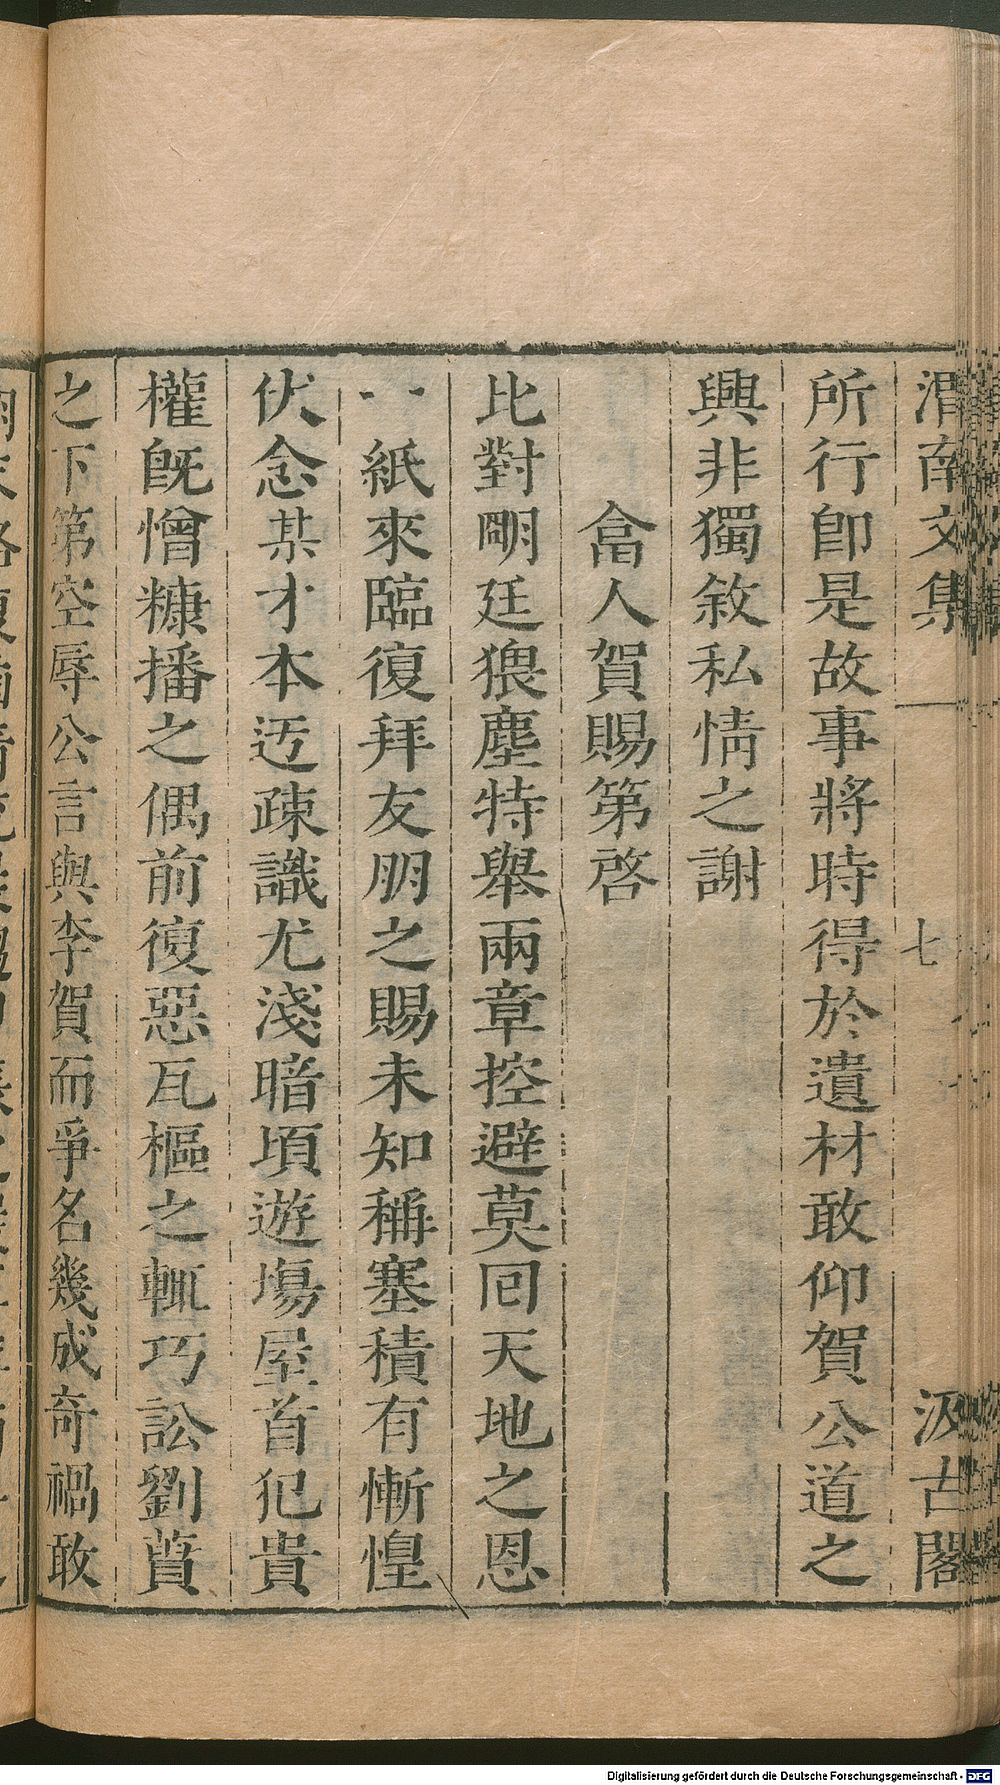 渭南文集 七 汲古閣
所行卽是故事將時得於遺材敢仰賀公道之
興非獨敘私情之謝
畣人賀賜第啓
比對朙廷猥塵特舉兩章控避莫回天地之恩
一紙來臨復拜友朋之賜未知稱塞積有慚惶
伏念某才本迃疎識尤淺暗頃遊場屋首犯貴
權旣憎糠播之偶前復惡瓦樞之輒巧訟劉蕡
之下第空辱公言與李賀而爭名幾成奇禍敢
Digitalisierung gefördert durch die Deutsche Forschungsgemeinschaft - DFG